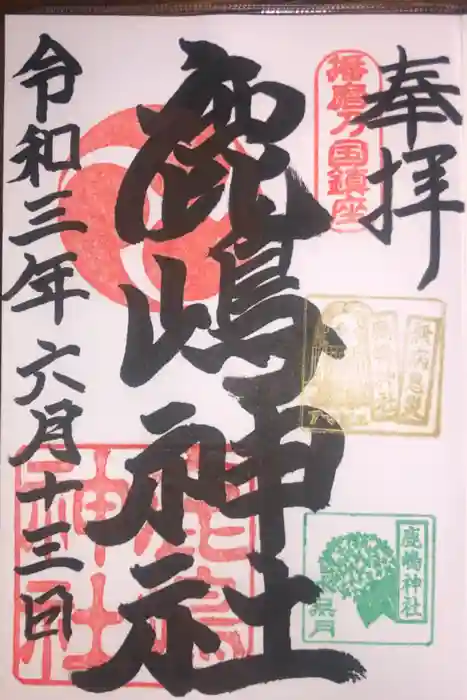 奉拝
播磨乃国鎮座
鹿嶋神社
令和三年六月十三日
鹿嶋神社
鹿嶋神社